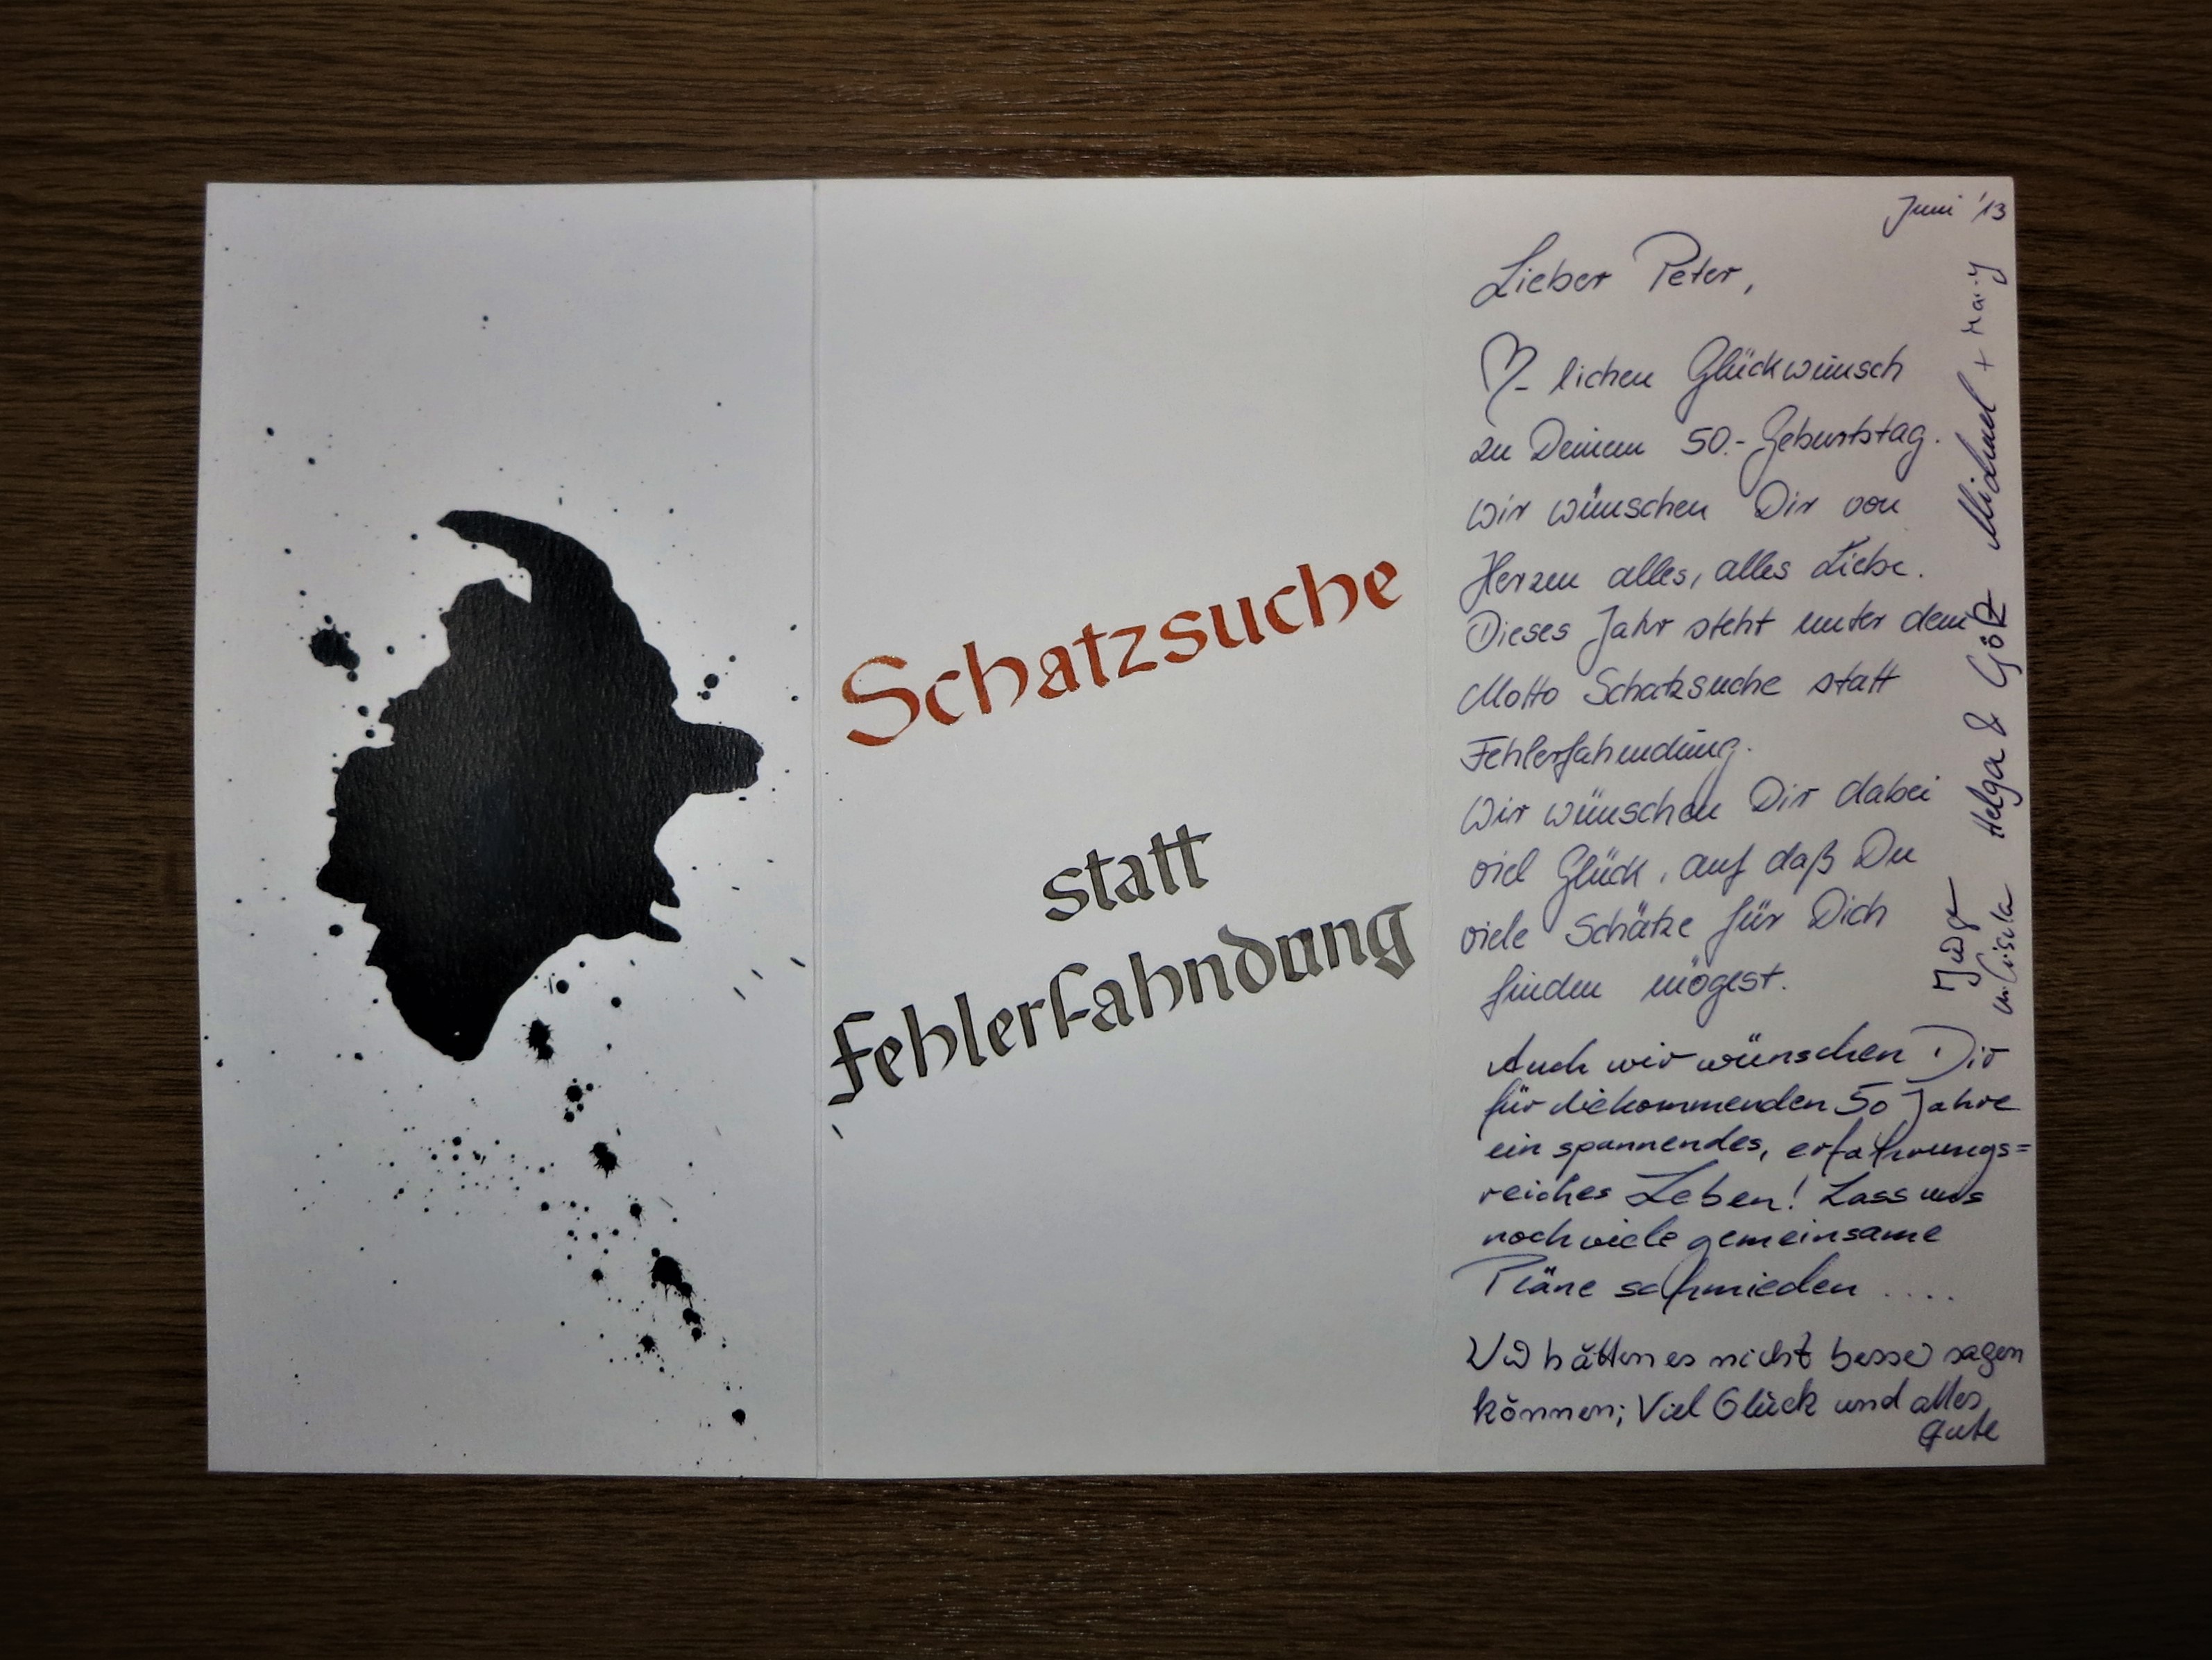 Schatzsuche
statt
Fehlerfahndung
Juni '13
Lieber Peter,
♡-lichen Glückwünsch
zu Deinem 50.- Geburtstag.
Wir wünschen Dir von
Herzen alles, alles Liebe.
Dieses Jahr steht unter dem
Motto Schatzsuche statt
Fehlerfahndung.
Wir wünschen Dir dabei
viel Glück, auf daß Du
viele Schätze für Dich
finden mögest.
Auch wir wünschen Dir
für die kommenden 50 Jahre
ein spannendes, erfahrungs=
reiches Leben! Lass uns
noch viele gemeinsame
Pläne schmieden ....
Wir hätten es nicht besser sagen
können; Viel Glück und alles
Gute
Helga & Götz Michael +